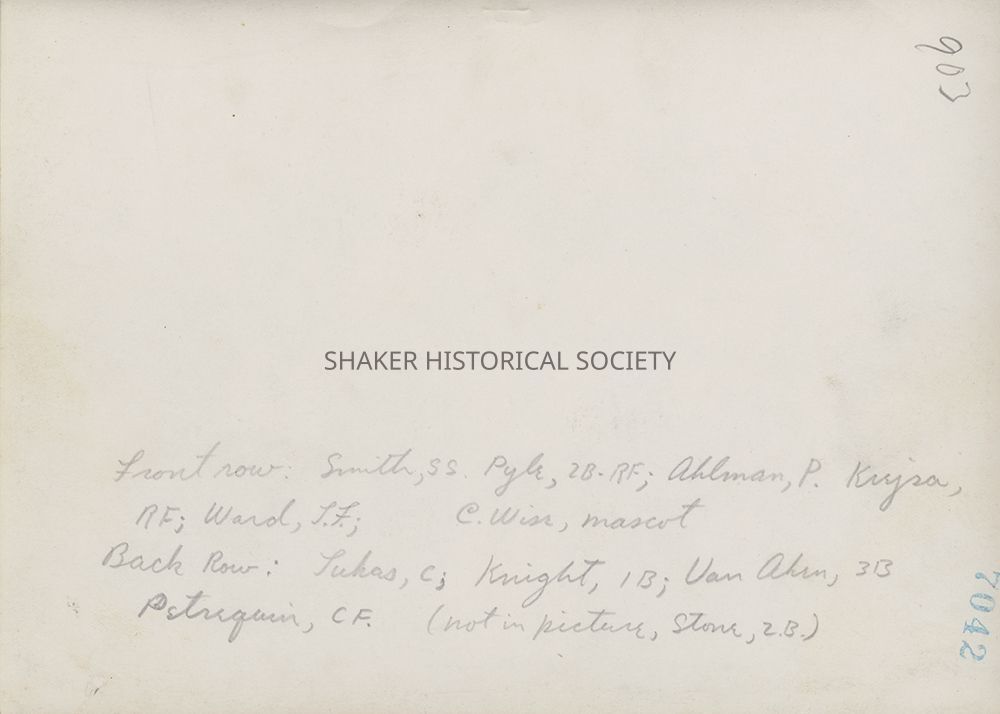 903
SHAKER HISTORICAL SOCIETY
Front row: Smith, SS. Pyle, 2B-RF; Ahlman, P. Krejsa,
RF; Ward, L.F.; C. Wise, mascot
Back Row: Lukas, C; Knight, 1B; Van Aken, 3B
Petrequin, CF. (not in picture, Stone, 2.B.)
7042